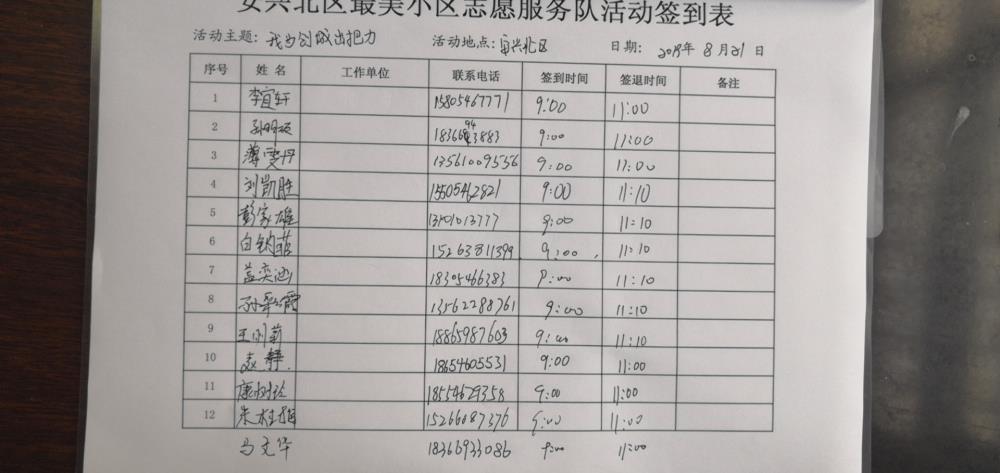 安兴北区最美小区志愿服务队活动签到表
活动主题: 我为创城出把力 活动地点: 安兴北区 日期: 2019年 8月21日
序号 姓名 工作单位 联系电话 签到时间 签退时间 备注
1 李宜轩 15805467771 9:00 11:00
2 9:00 11:00
3 薄雯丹 13561009556 9:00 11:00
4 刘凯胜 15505462821 9:00 11:10
5 彭家雄 9:00 11:10
6 15263811399 9:00 11:10
7 盖奕涵 18305466383 9:00 11:10
8 孙彩霞 13562288761 9:00 11:10
9 王刚莉 18865987603 9:00 11:10
10 赵静 18654605531 9:00 11:00
11 康树珍 18554629358 9:00 11:00
12 朱桂梅 15266087376 9:00 11:00
马文华 18366933086 9:00 11:00